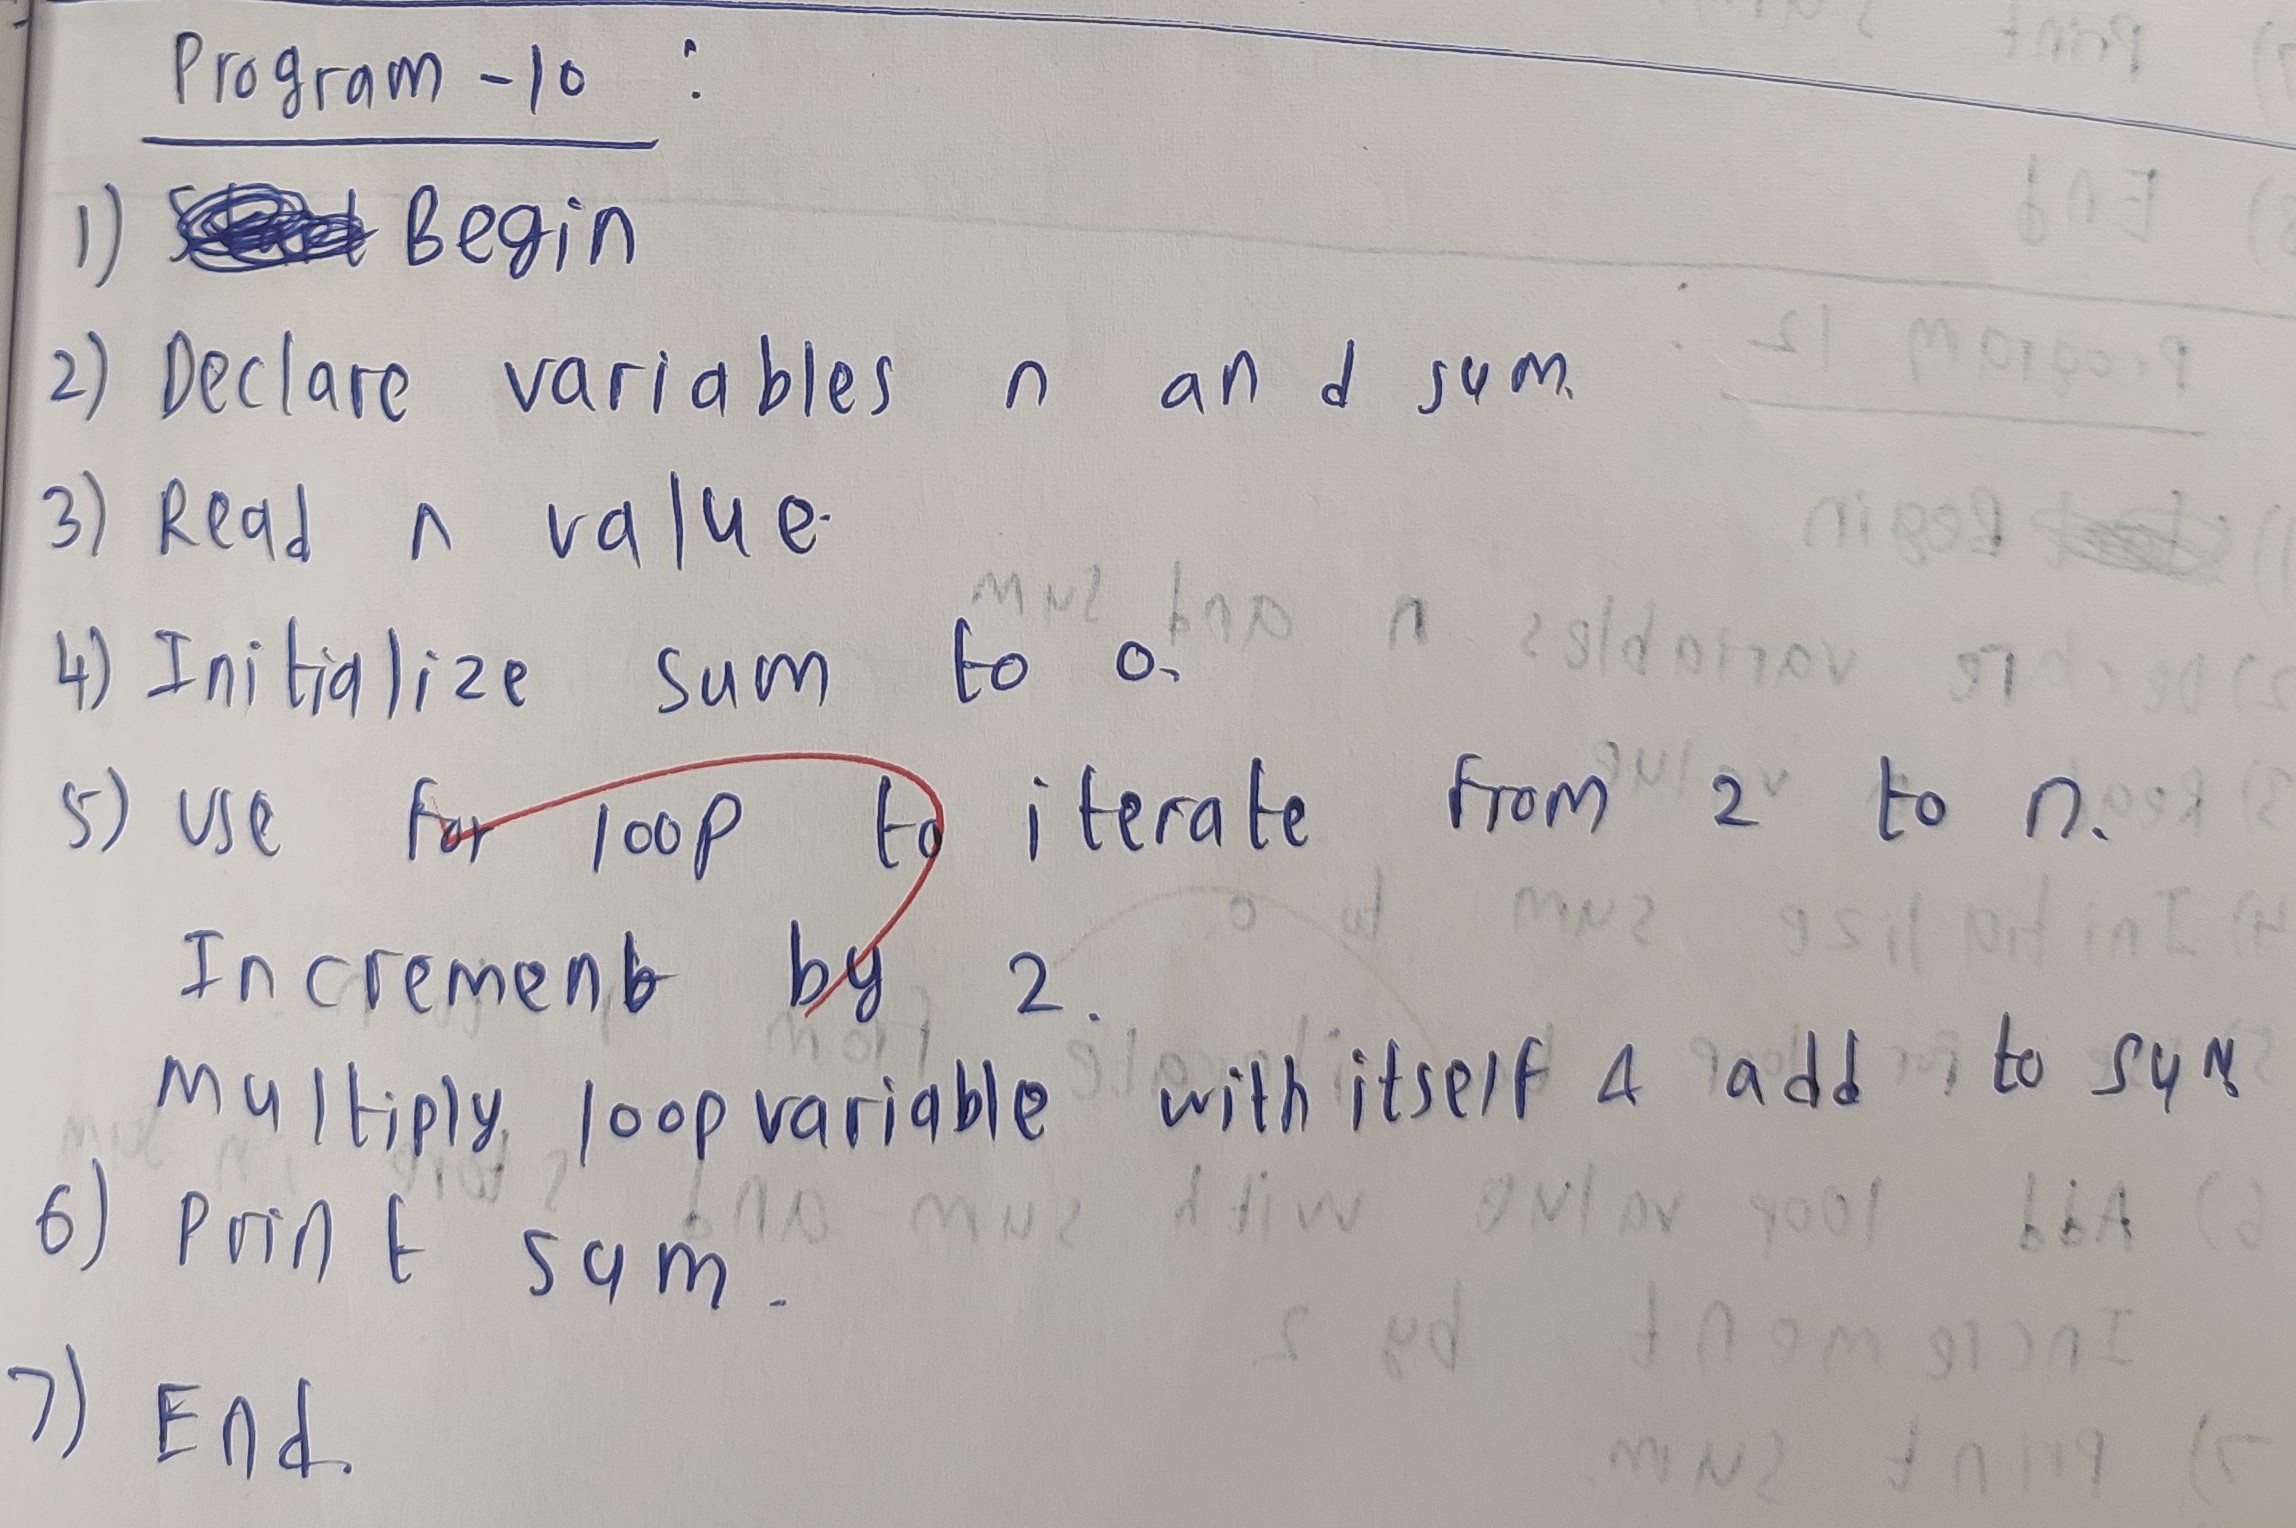 Program - 10 :
1) Begin
2) Declare variables n and sum.
3) Read n value.
4) Initialize sum to 0.
5) Use for loop to iterate from 2 to n.
Increment by 2.
Multiply loop variable with itself & add to sum
6) Print sum.
7) End.